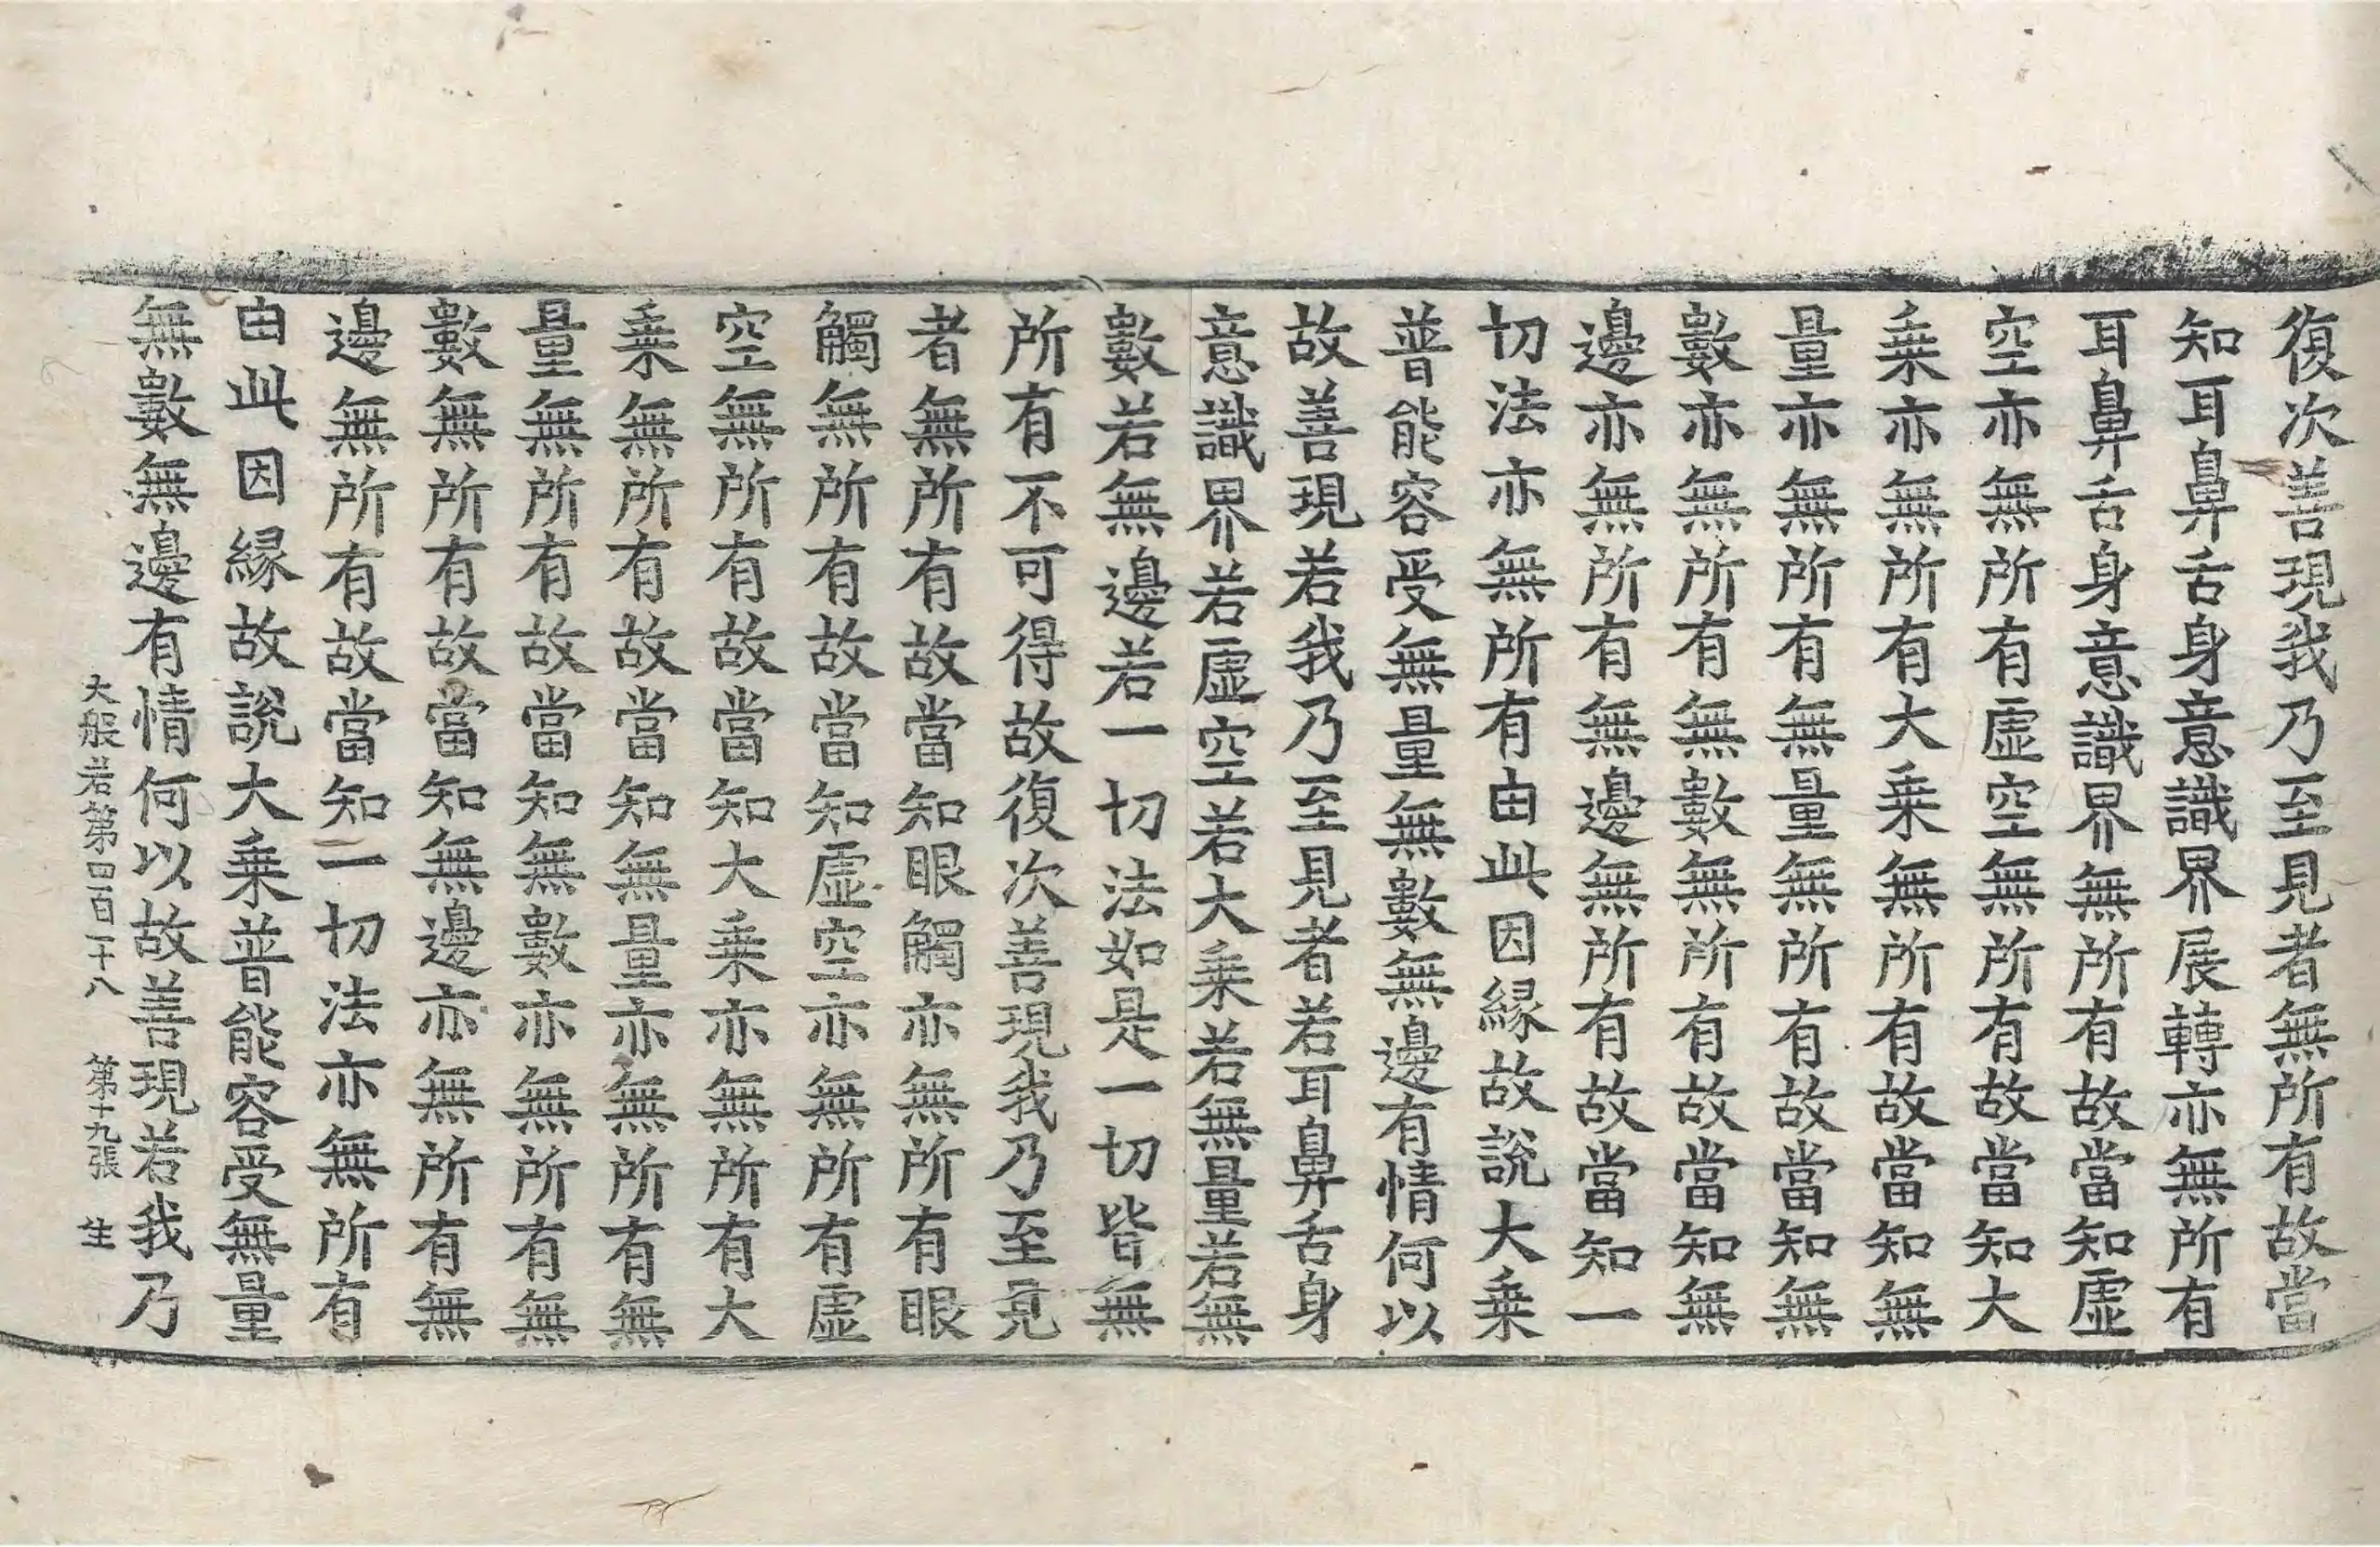 復次善現我乃至見者無所有故當
知耳鼻舌身意識界展轉亦無所有
耳鼻舌身意識界無所有故當知虛
空亦無所有虛空無所有故當知大
乘亦無所有大乘無所有故當知無
量亦無所有無量無所有故當知無
數亦無所有無數無所有故當知無
邊亦無所有無邊無所有故當知一
切法亦無所有由此因緣故說大乘
普能容受無量無數無邊有情何以
故善現若我乃至見者若耳鼻舌身
意識界若虛空若大乘若無量若無
數若無邊若一切法如是一切皆無
所有不可得故復次善現我乃至見
者無所有故當知眼觸亦無所有眼
觸無所有故當知虛空亦無所有虛
空無所有故當知大乘亦無所有大
乘無所有故當知無量亦無所有無
量無所有故當知無數亦無所有無
數無所有故當知無邊亦無所有無
邊無所有故當知一切法亦無所有
由此因緣故說大乘普能容受無量
無數無邊有情何以故善現若我乃
大般若第四百一十八 第十九張 生